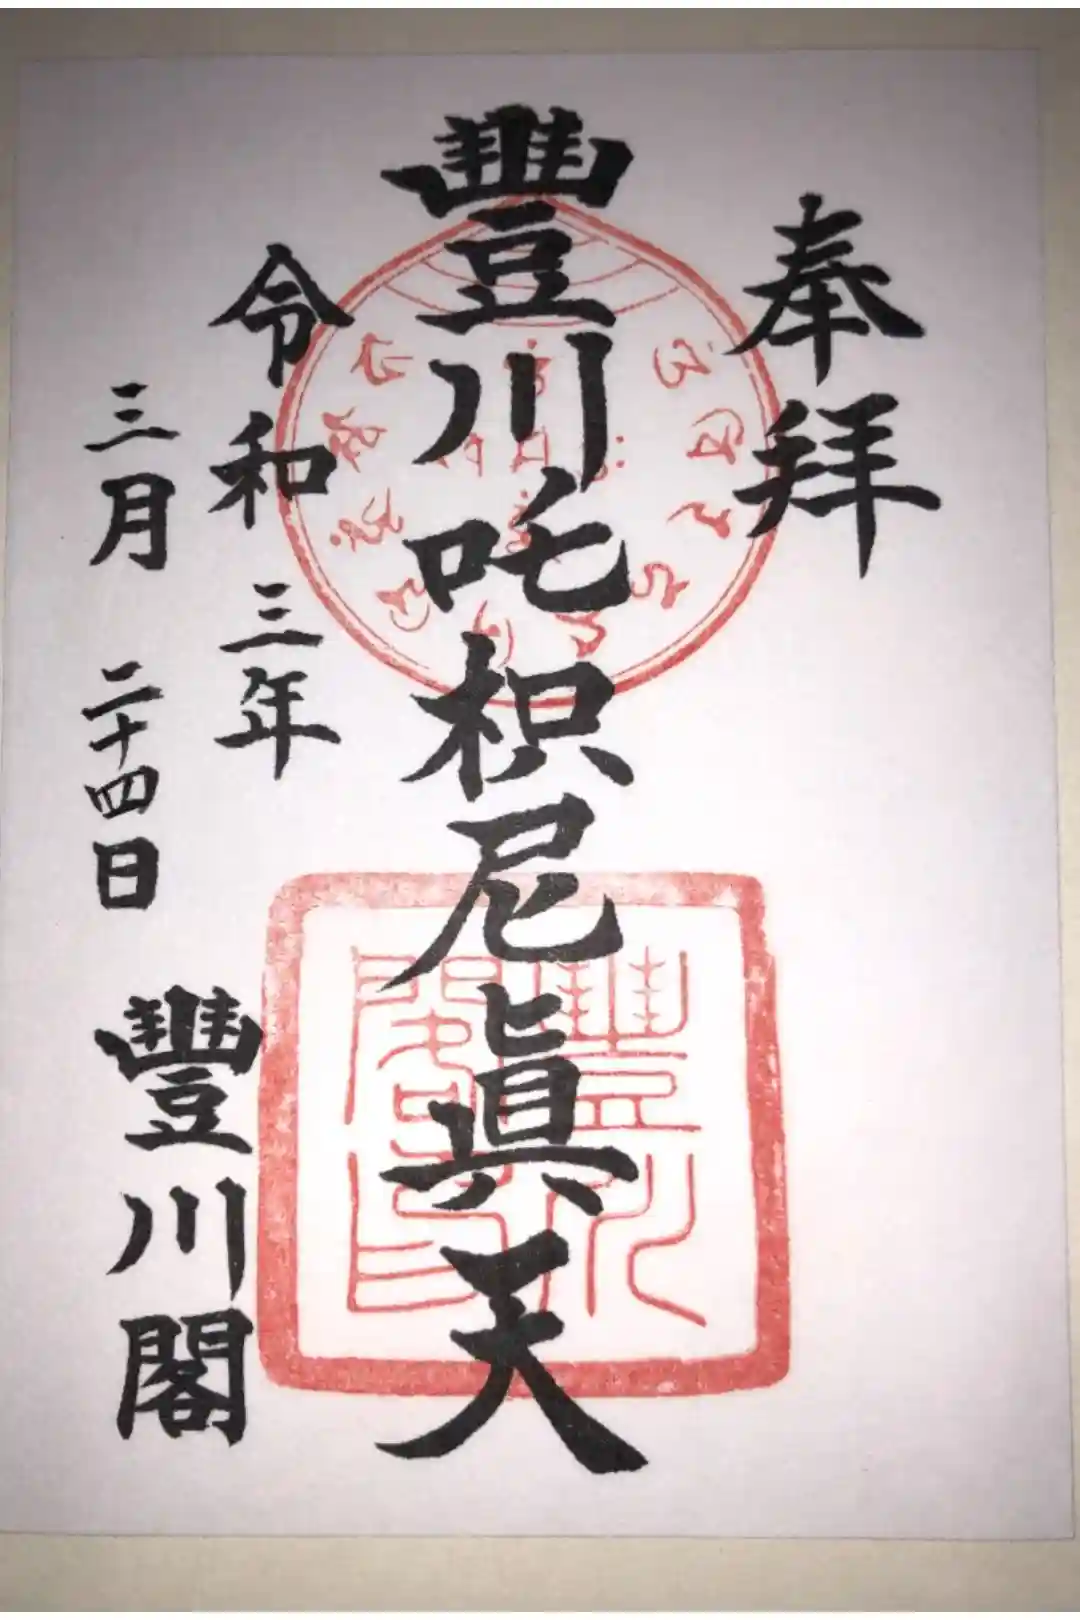 奉拜
豐川吒枳尼眞天
令和三年
三月二十四日
豐川閣
豐川閣印